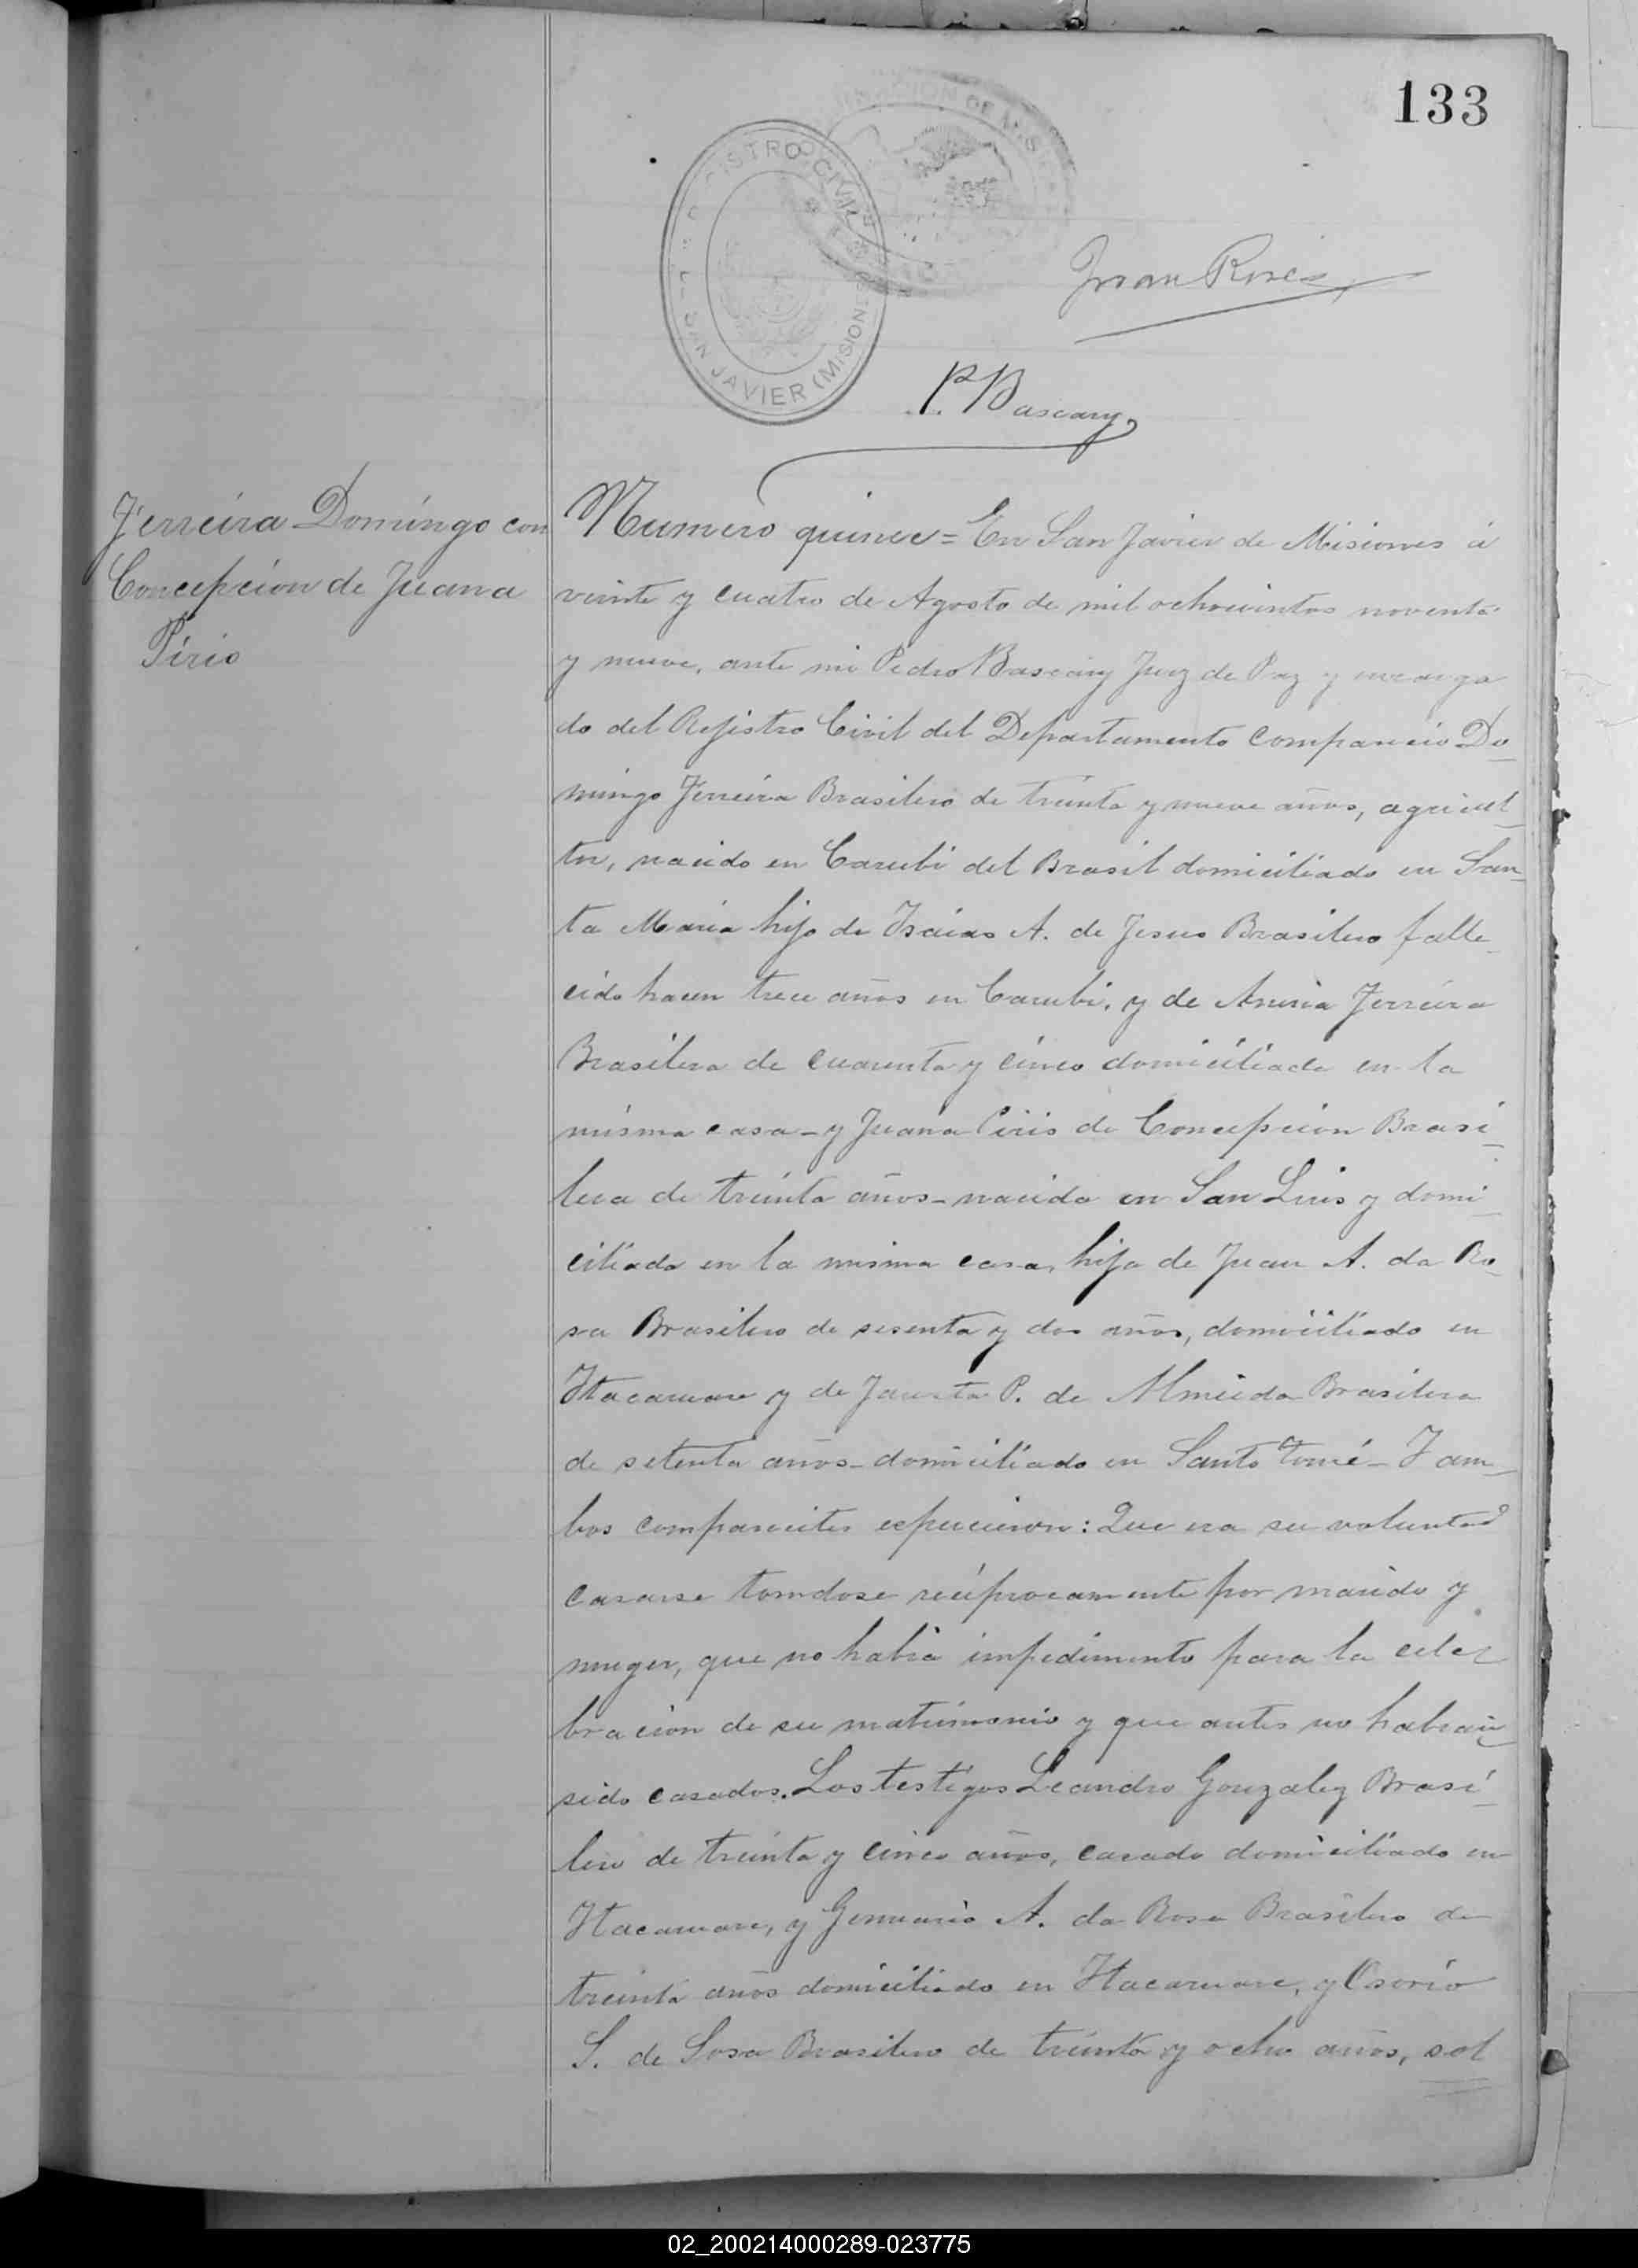 133
REGISTRO CIVIL
SAN JAVIER (MISIONES)
Juan
P. Bascary
Ferreira Domingo con
Concepcion de Juana
Piris
Numero quince = En San Javier de Misiones á
veinte y cuatro de Agosto de mil ochocientos noventa
y nueve, ante mi Pedro Bascary Juez de Paz y encarga
do del Rejistro Civil del Departamento comparecio Do_
mingo Ferreira Brasilero de treinta y nueve años, agricul_
tor, nacido en Carubi del Brasil domiciliado en San_
ta Maria hijo de Isaias A. de Jesus Brasilero falle_
cido hacen trece años en Carubi, y de Ferreira
Brasilera de cuarenta y cinco domiciliada en la
misma casa_ y Juana Piris de Concepcion Brasi_
lera de treinta años_ nacida en San Luis y domi_
ciliada en la misma casa, hija de Juan A. da Ro_
sa Brasilero de sesenta y dos años, domiciliado en
Itacaruare y de P. de Almeida Brasilera
de setenta años_ domiciliado en Santo Tomé_ I am_
bos comparecites : Que era su voluntad
casarse tomdose reciprocamente por marido y
muger, que no habia impedimento para la cele
bracion de su matrimonio y que antes no habian
sido casados. Los testigos Leandro Gonzalez Brasi_
lero de treinta y cinco años, casado domiciliado en
Itacaruare, y Genuario A. da Rosa Brasilero de
treinta años domiciliado en Itacaruare, y Osorio
S. de Sosa Brasilero de treinta y ocho años, sol
02_200214000289-023775